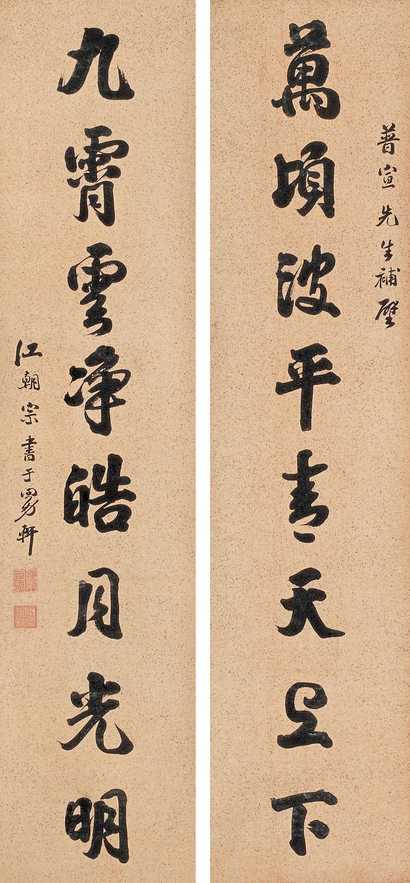 普宣先生補壁
萬頃波平青天上下
九霄雲淨皓月光明
江朝宗書于四勿軒